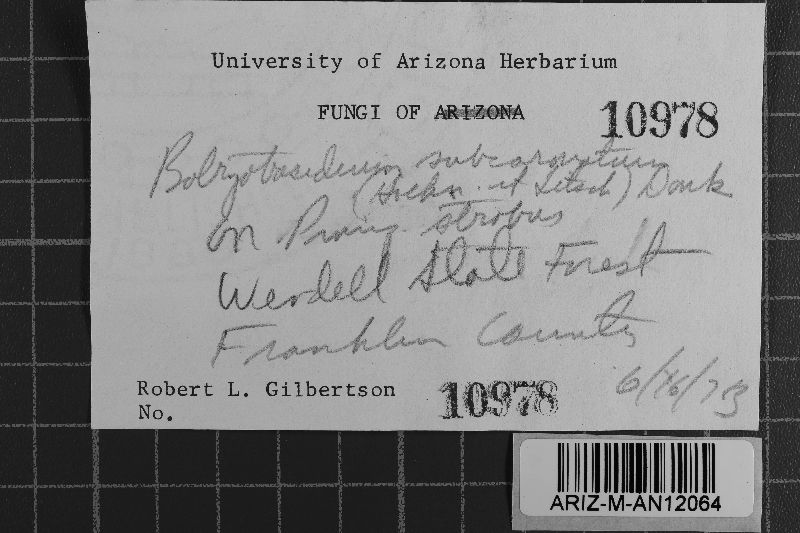 University of Arizona Herbarium
FUNGI OF ARIZONA 10978
Botryobasidium subcoronatum
(Hoehn. et Litsch) Donk
on Pinus strobus
Wendell State Forest
Franklin County
6/16/73
Robert L. Gilbertson
No. 10978
ARIZ-M-AN12064